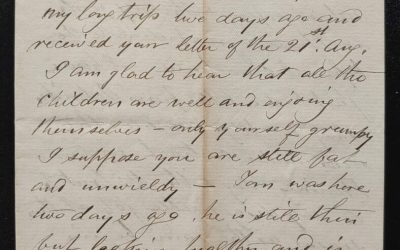 my long trip two days ago and
received your letter of the 21st. Aug.
I am glad to hear that all the
children are well and enjoying
themselves – only yourself grumpy
I suppose you are still fat
and unwieldy – Tom was here
two days ago. he is still thin
but looking healthy and is